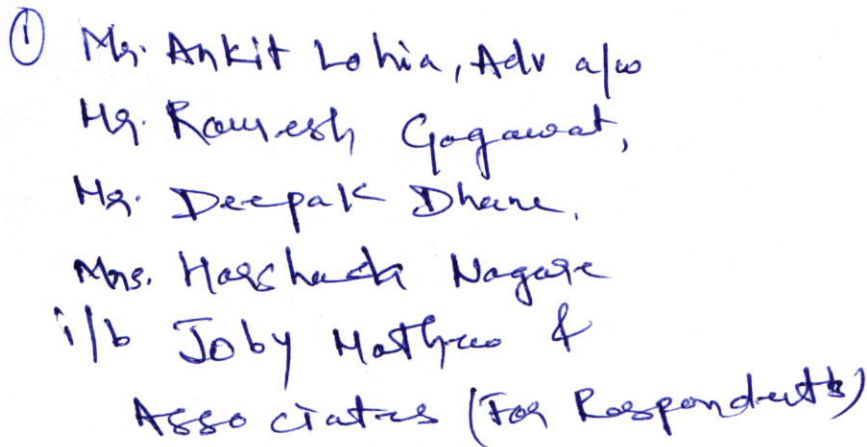 ① Mr. Ankit Lohia, Adv a/w
Mr. Ramesh Gogawat,
Mr. Deepak Dhane,
Mrs. Harshada Nagare
i/b Joby Mathew &
Associates (For Respondents)